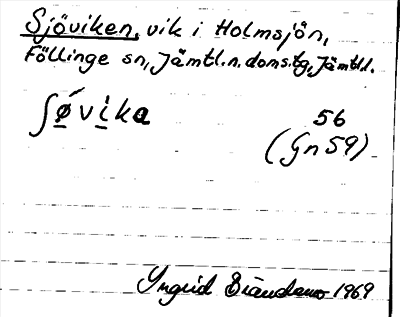 Sjöviken, vik i Holmsjön,
Föllinge sn, Jämtl.n.doms.tg, Jämtl.l.
ʃǿvika
56
(Gn 59)
Yngrid 1969